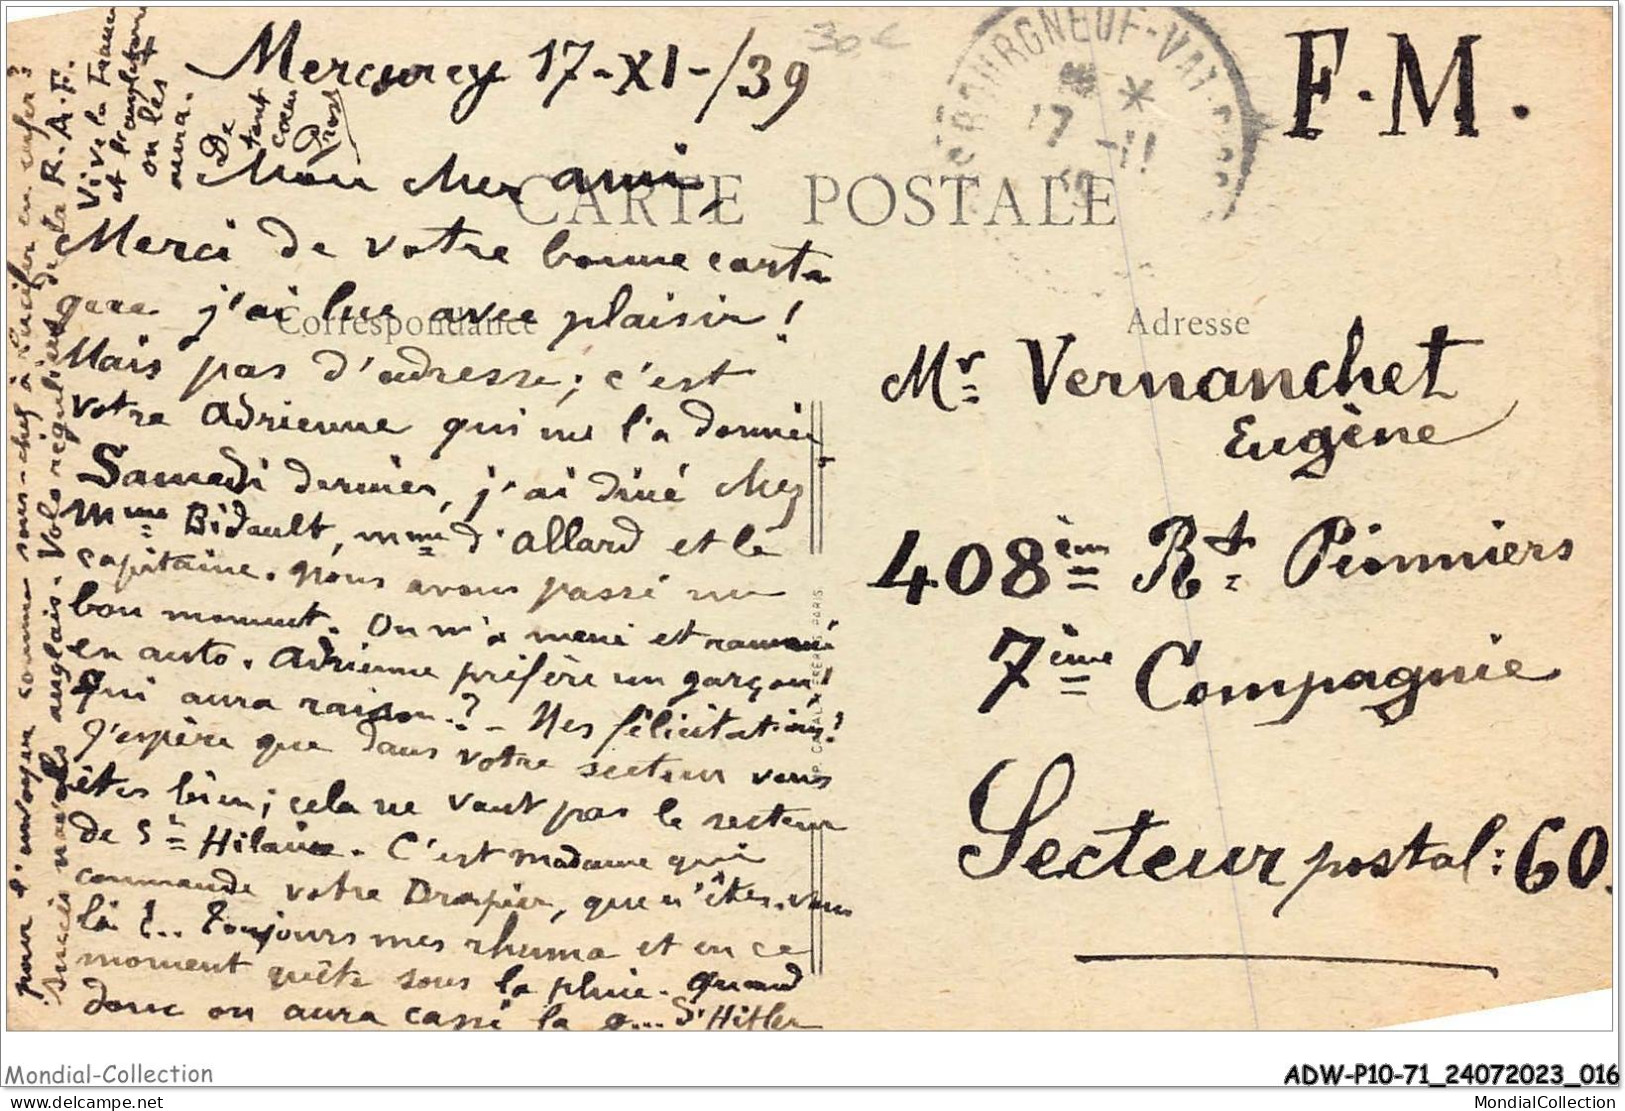 Mercurey 17-XI-/39
30€
F.M.
BOURGNEUF-VAL-D'OR
17-11
39
CARTE POSTALE
Correspondance
Adresse
Mon cher ami,
Merci de votre bonne carte
que j'ai lue avec plaisir !
Mais pas d'adresse ; c'est
votre Adrienne qui me l'a donnée
Samedi dernier, j'ai diné chez
Mme Bidault, mme d'Allard et le
capitaine. Nous avons passé un
bon moment. On m'a mené et ramené
en auto. Adrienne préfère un garçon !
Qui aura raison ? - Mes félicitations !
J'espère que dans votre secteur vous
êtes bien ; cela ne vaut pas le secteur
de St Hilaire. C'est madame qui
commande votre Drapier, que n'êtes-vous
là !.. Toujours mes rhuma et en ce
moment quête sous la pluie. Quand
donc on aura cassé la g... d'Hitler
pour l'envoyer comme sous-chef à Lucifer en enfer ?
Succès navals anglais. Vols réguliers de la R.A.F.
Vive la France
et l'Angleterre
on les
aura.
De
tout
cœur
Prost
Mr. Vernanchet
Eugène
408ème Rt. Pionniers
7ème Compagnie
Secteur postal : 60.
Mondial-Collection
ADW-P10-71_24072023_016
www.delcampe.net
MondialCollection